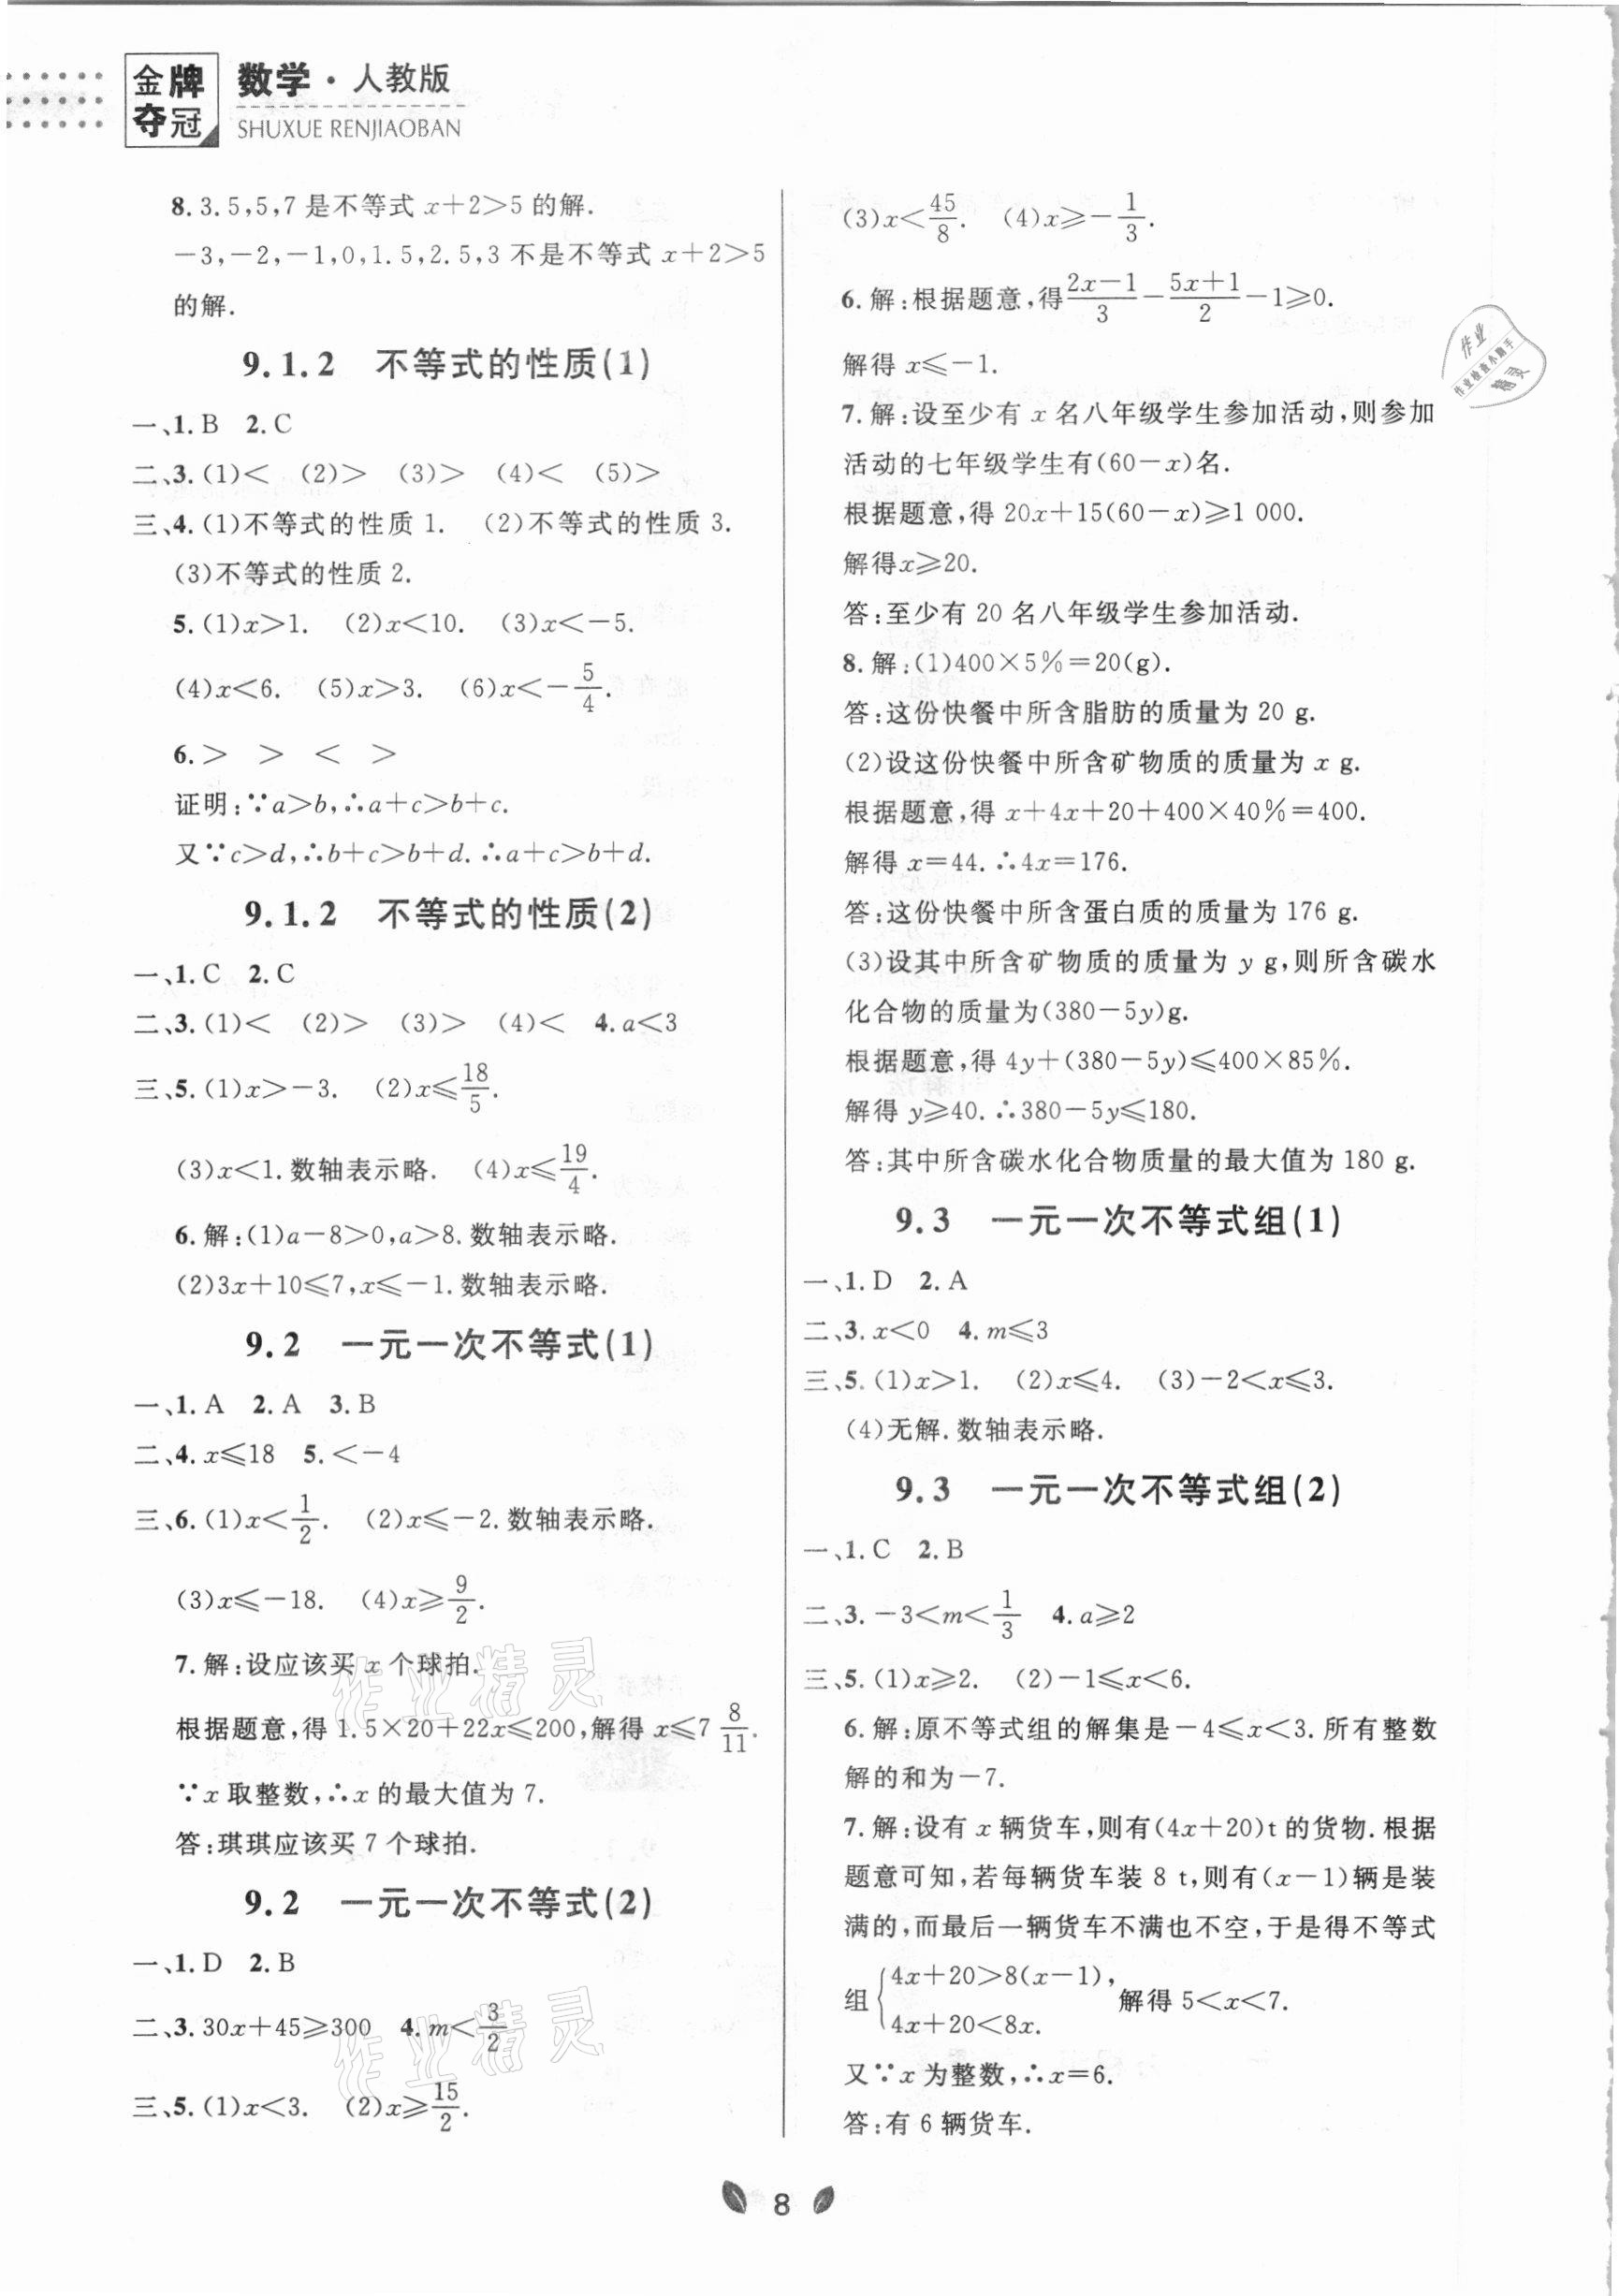 金牌夺冠
数学·人教版
SHUXUE RENJIAOBAN
8. 3.5,5,7 是不等式 x+2>5 的解.
-3,-2,-1,0,1.5,2.5,3 不是不等式 x+2>5
的解.
9.1.2 不等式的性质(1)
一、1. B 2. C
二、3. (1)< (2)> (3)> (4)< (5)>
三、4. (1)不等式的性质 1. (2)不等式的性质 3.
(3)不等式的性质 2.
5. (1)x>1. (2)x<10. (3)x<-5.
(4)x<6. (5)x>3. (6)x<-5/4.
6. > > < >
证明:∵a>b,∴a+c>b+c.
又∵c>d,∴b+c>b+d.∴a+c>b+d.
9.1.2 不等式的性质(2)
一、1. C 2. C
二、3. (1)< (2)> (3)> (4)< 4. a<3
三、5. (1)x>-3. (2)x≤18/5.
(3)x<1. 数轴表示略. (4)x≤19/4.
6. 解:(1)a-8>0,a>8. 数轴表示略.
(2)3x+10≤7,x≤-1. 数轴表示略.
9.2 一元一次不等式(1)
一、1. A 2. A 3. B
二、4. x≤18 5. <-4
三、6. (1)x<1/2. (2)x≤-2. 数轴表示略.
(3)x≤-18. (4)x≥9/2.
7. 解:设应该买 x 个球拍.
根据题意,得 1.5×20+22x≤200,解得 x≤7 8/11.
∵x 取整数,∴x 的最大值为 7.
答:琪琪应该买 7 个球拍.
9.2 一元一次不等式(2)
一、1. D 2. B
二、3. 30x+45≥300 4. m<3/2
三、5. (1)x<3. (2)x≥15/2.
(3)x<45/8. (4)x≥-1/3.
6. 解:根据题意,得(2x-1)/3-(5x+1)/2-1≥0.
解得 x≤-1.
7. 解:设至少有 x 名八年级学生参加活动,则参加
活动的七年级学生有(60-x)名.
根据题意,得 20x+15(60-x)≥1 000.
解得x≥20.
答:至少有 20 名八年级学生参加活动.
8. 解:(1)400×5%=20(g).
答:这份快餐中所含脂肪的质量为 20 g.
(2)设这份快餐中所含矿物质的质量为 x g.
根据题意,得 x+4x+20+400×40%=400.
解得 x=44.∴4x=176.
答:这份快餐中所含蛋白质的质量为 176 g.
(3)设其中所含矿物质的质量为 y g,则所含碳水
化合物的质量为(380-5y)g.
根据题意,得 4y+(380-5y)≤400×85%.
解得 y≥40.∴380-5y≤180.
答:其中所含碳水化合物质量的最大值为 180 g.
9.3 一元一次不等式组(1)
一、1. D 2. A
二、3. x<0 4. m≤3
三、5. (1)x>1. (2)x≤4. (3)-2<x≤3.
(4)无解. 数轴表示略.
9.3 一元一次不等式组(2)
一、1. C 2. B
二、3. -3<m<1/3 4. a≥2
三、5. (1)x≥2. (2)-1≤x<6.
6. 解:原不等式组的解集是-4≤x<3. 所有整数
解的和为-7.
7. 解:设有 x 辆货车,则有(4x+20)t 的货物. 根据
题意可知,若每辆货车装 8 t,则有(x-1)辆是装
满的,而最后一辆货车不满也不空,于是得不等式
组{4x+20>8(x-1), 4x+20<8x. 解得 5<x<7.
又∵x 为整数,∴x=6.
答:有 6 辆货车.
8
作业
作业检查小助手
精灵
作业精灵
作业精灵